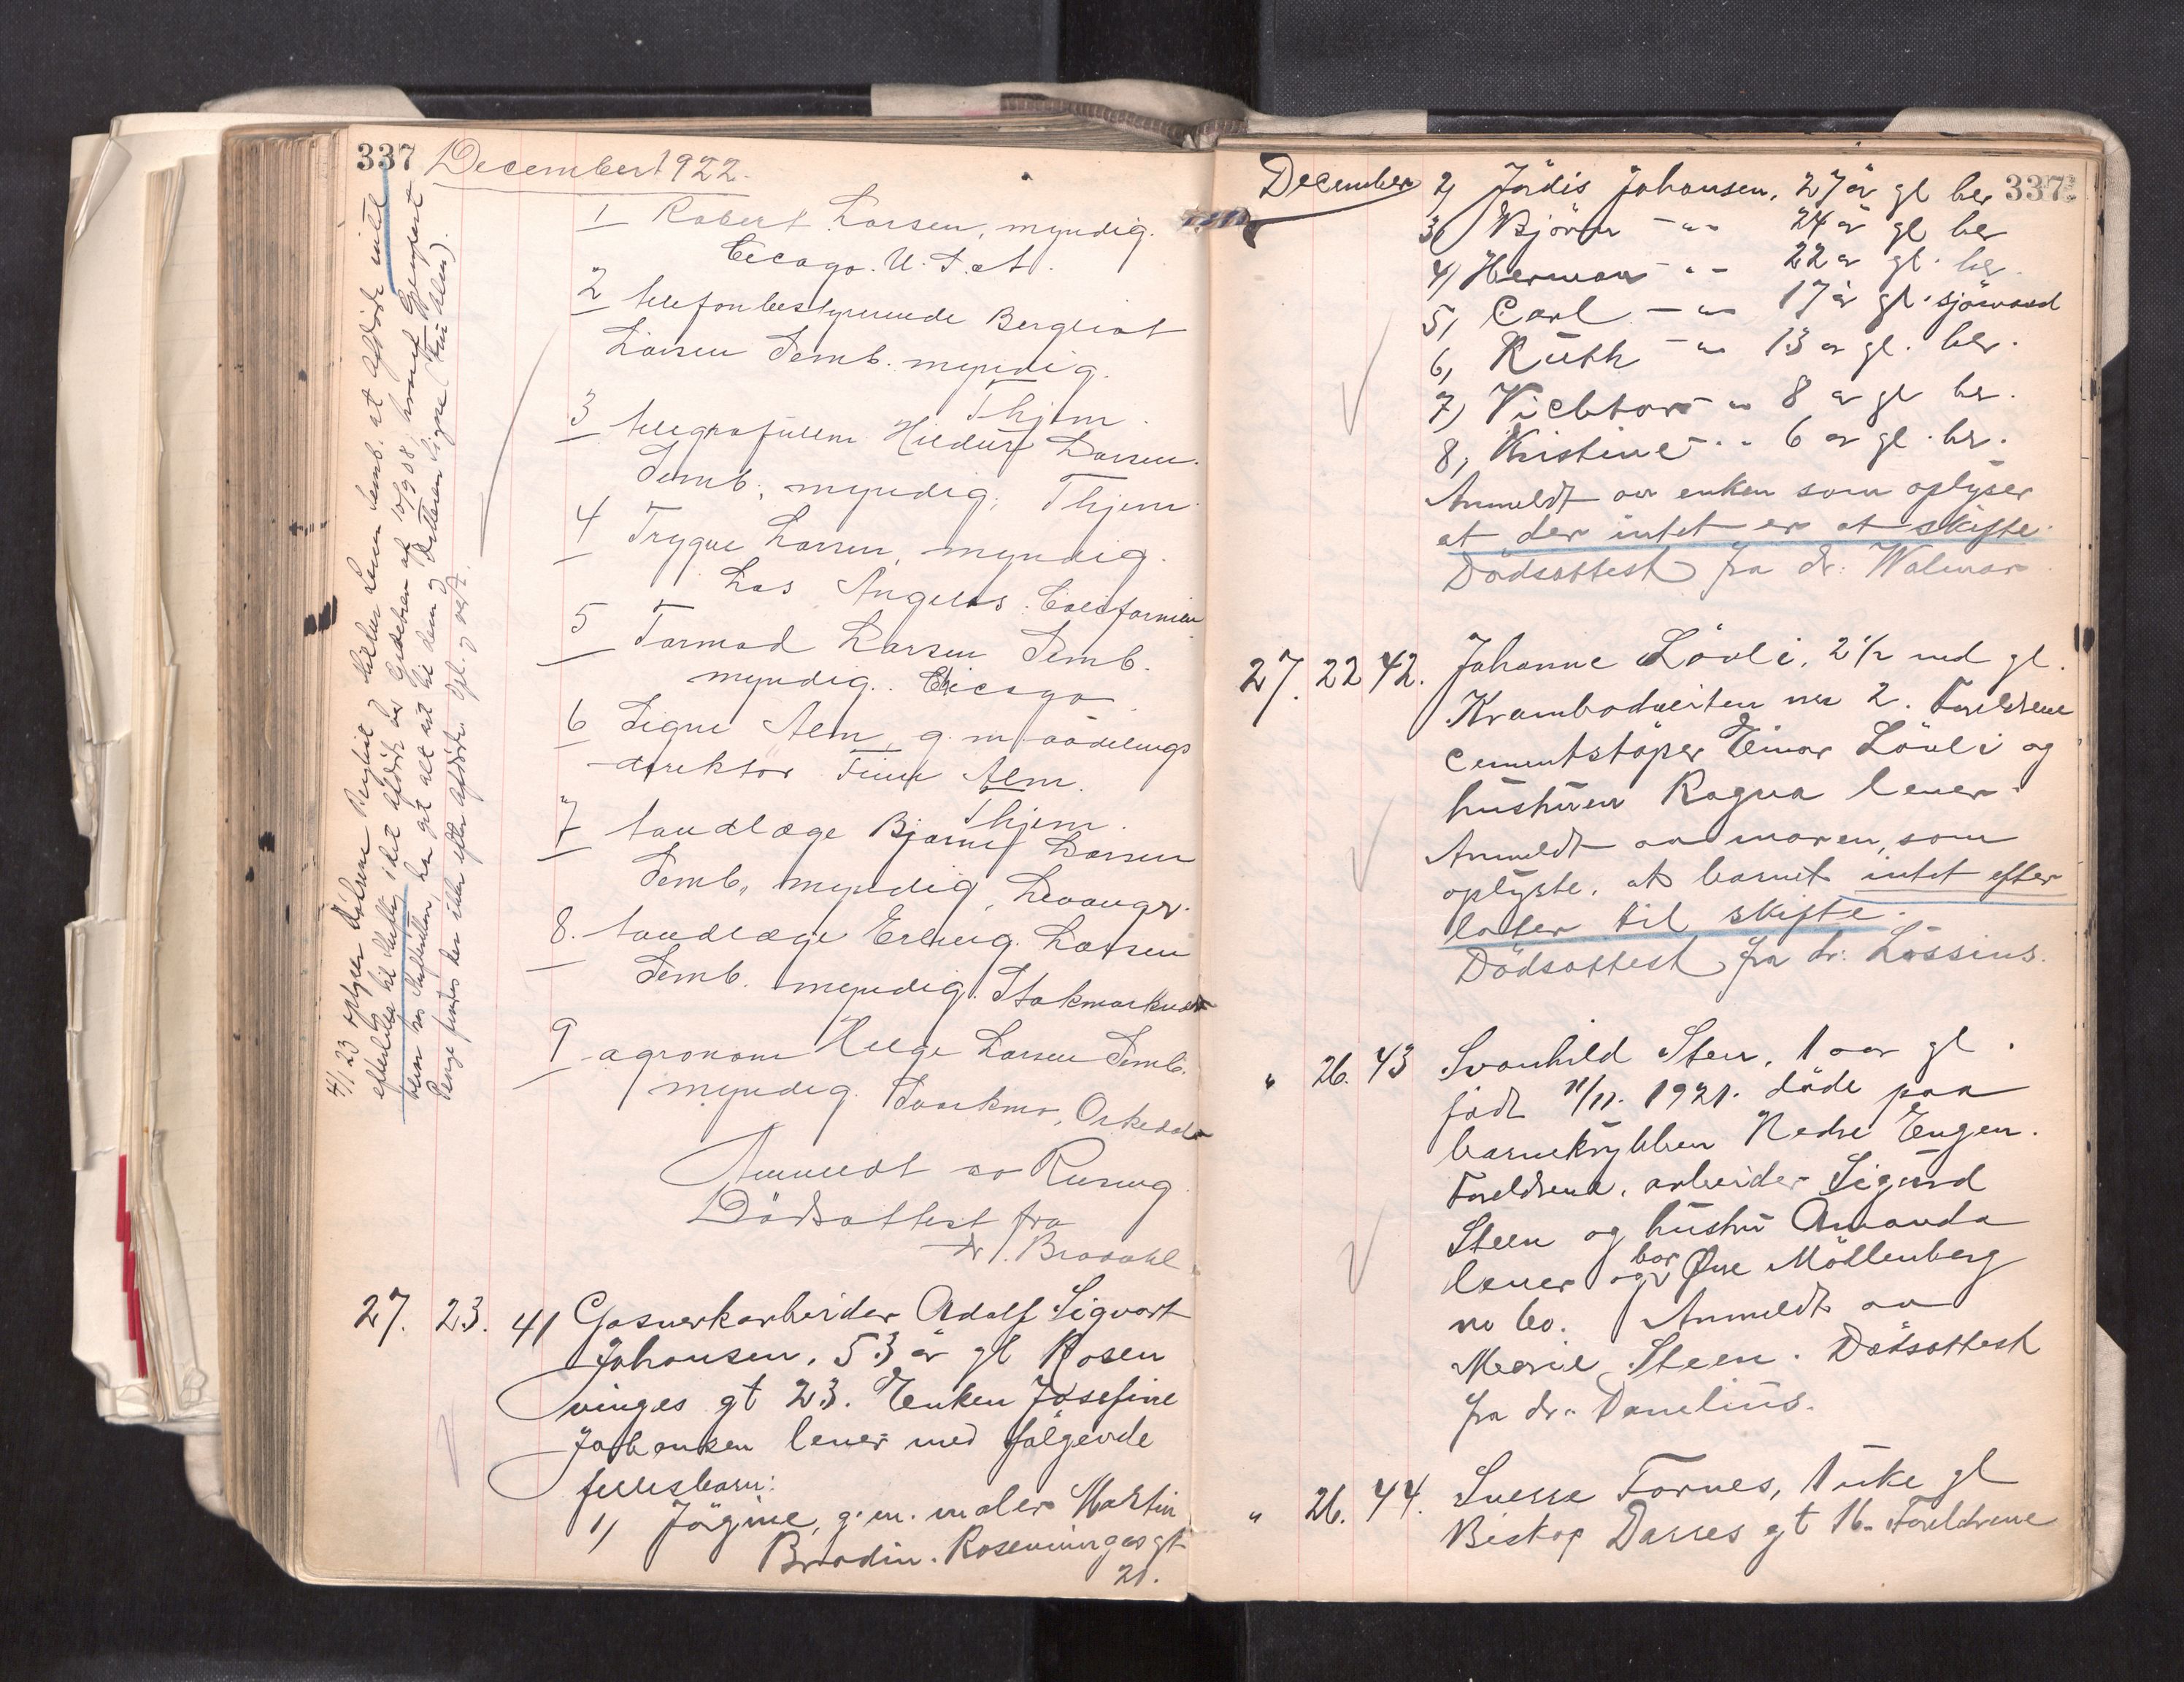 337 December 1922.
1 Robert Larsen, myndig.
Cicago. U.S.A.
2 telefonbestyrerinde Bergliot
Larsen Semb. myndig.
Thjem.
3 telegrafistin Hildur Larsen
Semb, myndig, Thjem.
4 Trygve Larsen, myndig.
Los Angelos. Californien
5 Tormod Larsen Semb.
myndig. Chicago
6 Signe Alm, g.m. avdelings
direktør Finn Alm.
Thjem.
7 tandlæge Bjarne Larsen
Semb, myndig, Levanger.
8. tandlæge Erling Larsen
Semb. myndig. Stokmarknes
9 agronom Helge Larsen Semb.
myndig. Orkedal
Anmeldt av
Dödsattest fra
dr. Brodahl.
27. 23. 41 Gasverkarbeider Adolf Sigvart
Johansen, 53 år gl Rosen
vinges gt 23. Enken Josefine
Johansen lever med følgende
fellesbarn:
1) Jörgine, g.m. maler Martin
Brodin. Rosenvinges gt
21.
4/1 23 oplyser Bergliot og Hildur Larsen Semb. at afdøde intet
efterlot til skifte
December 337
2) Jördis Johansen, 27 år gl her
3) Björn -"- 24 år gl her
4) Herman -"- 22 år gl. her.
5) Carl -"- 17 år gl. sjömand
6) Ruth -"- 13 år gl. her.
7) Vicktor -"- 8 år gl her.
8) Kristine -"- 6 år gl. her.
Anmeldt av enken som oplyser
at der intet er at skifte.
Dödsattest fra dr. Walmar
27. 22 42. Johanne Lövli, 2½ md gl.
Krambodveiten no 2. Foreldrene
cementstöper Einar Lövli og
hustruen Ragna lever.
Anmeldt av moren, som
oplyste, at barnet intet efter
later til skifte.
Dödsattest fra dr. Lössius.
" 26. 43 Svanhild Steen, 1 aar gl.
født 11/11. 1921. døde paa
barnekrybben Nedre Engen.
Foreldrene, arbeider Sigurd
Steen og hustru Amanda
lever og bor Øvre Möllenberg
no 60. Anmeldt av
Marie Steen. Dödsattest
fra dr. Danelius.
" 26. 44. Sverre Fornes, 1 uke gl
Biskop Darres gt 16. Foreldrene